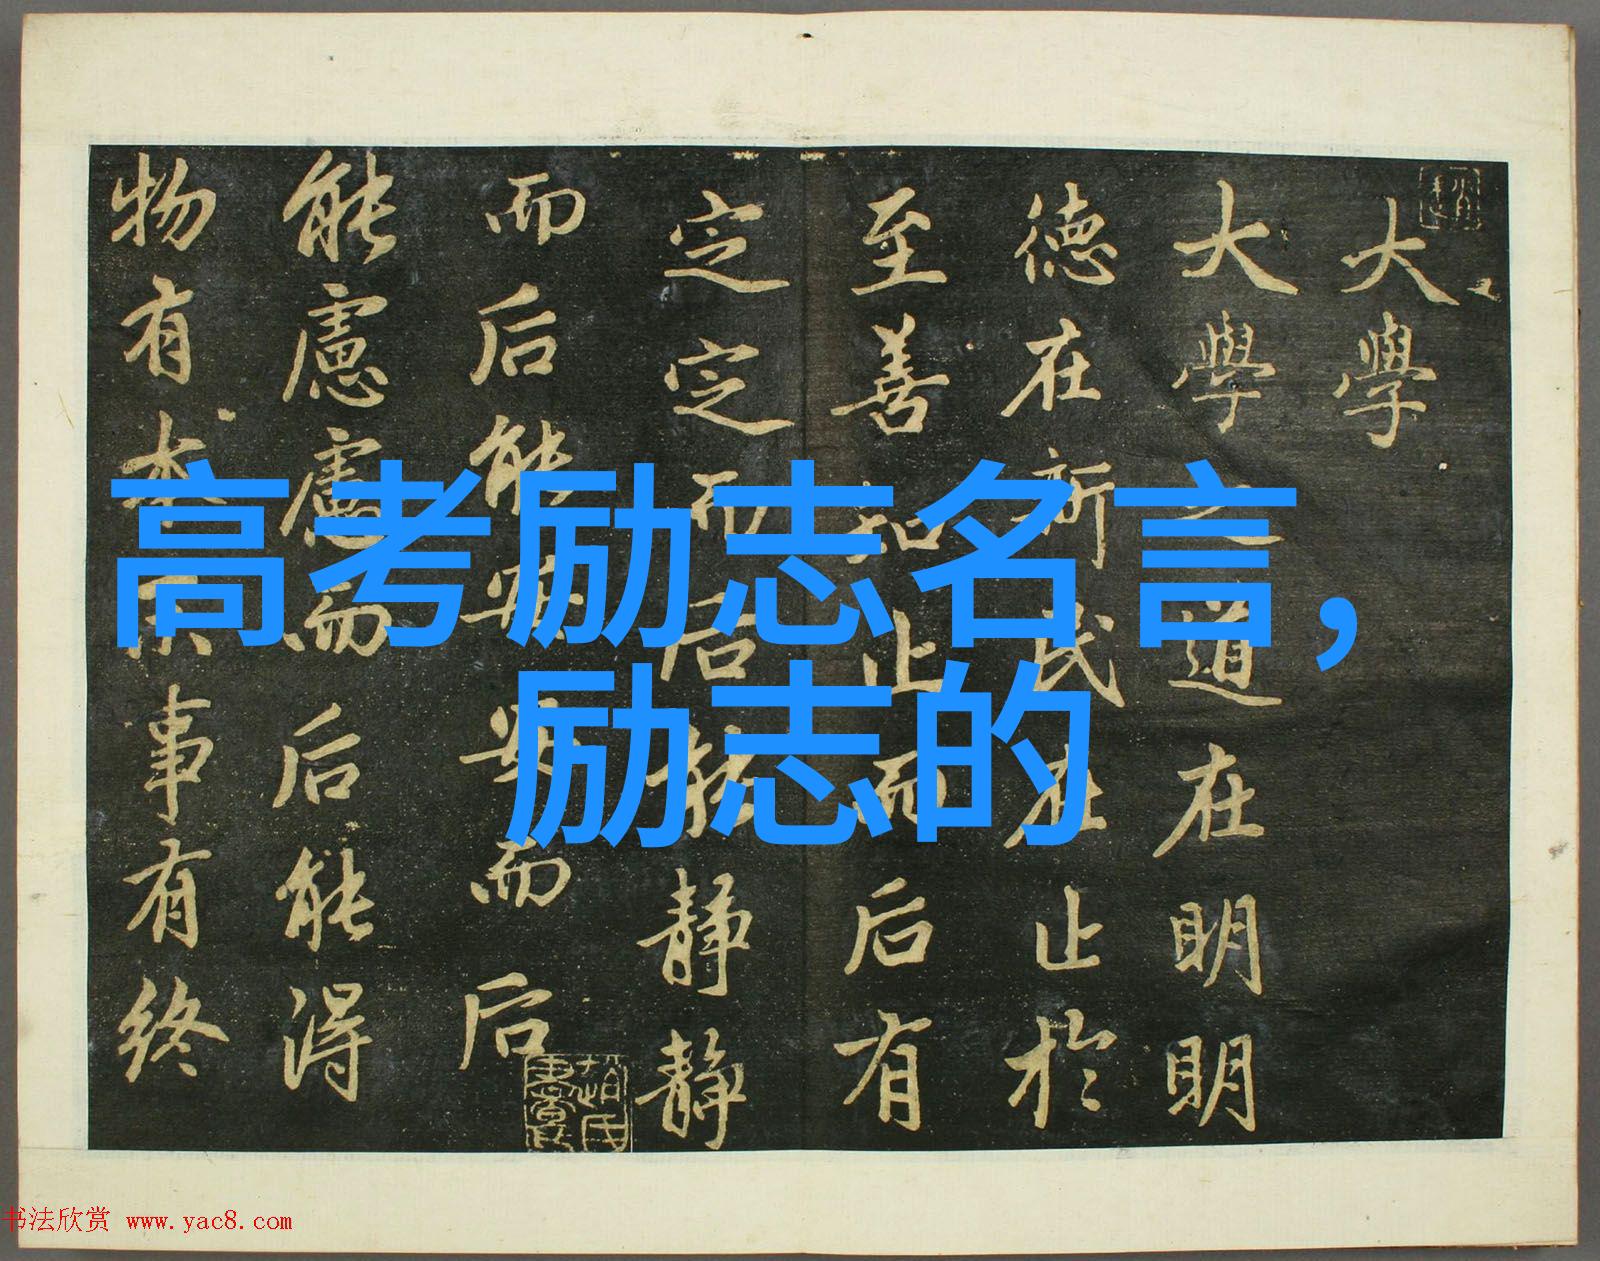 大學
大學之道在明明
德在新民在止於
至善知止而后有
定定而后能静静
而后能安安而后
能慮慮而后能得
物有本末事有終
高考励志名言，
励志的
书法欣赏 www.yac8.com